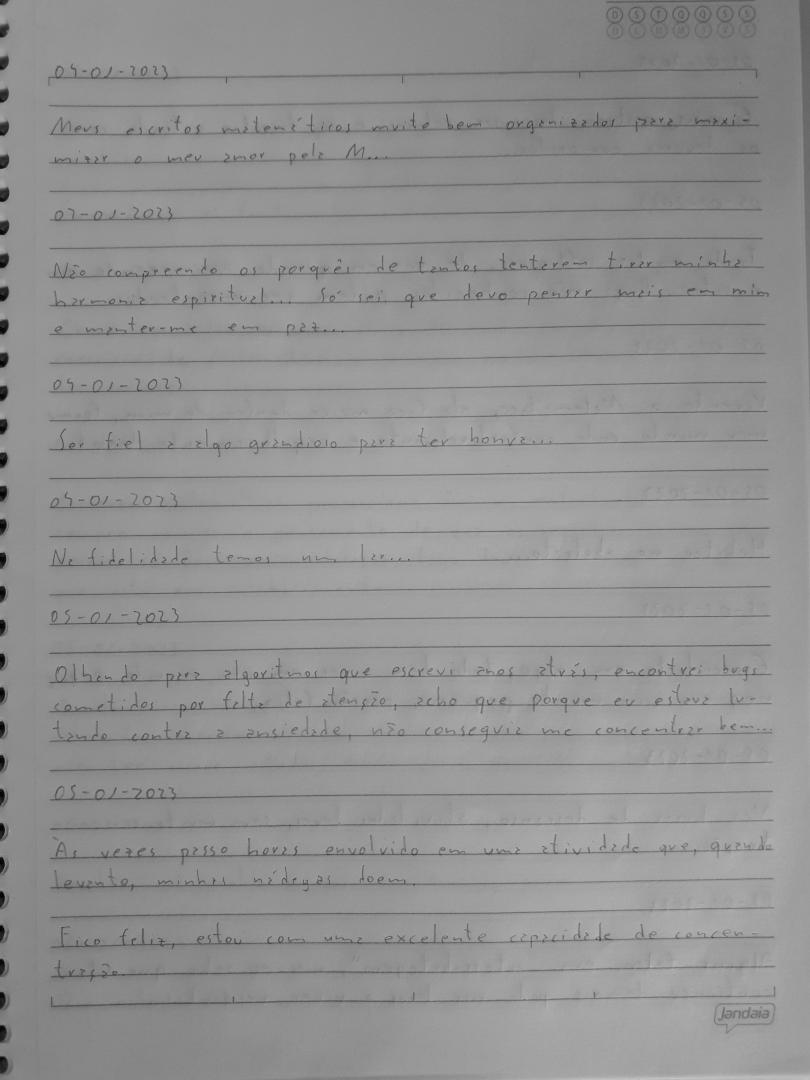 D S T Q Q S S
04-01-2023
Meus escritos matemáticos muito bem organizados para maxi-
mizar o meu amor pela M...
07-01-2023
Não compreendo os porquês de tantos tentarem tirar minha
harmonia espiritual... Só sei que devo pensar mais em mim
e manter-me em paz...
04-01-2023
Ser fiel a algo grandioso para ter honra...
04-01-2023
Na fidelidade temos um lar...
05-01-2023
Olhando para algoritmos que escrevi anos atrás, encontrei bugs
cometidos por falta de atenção, acho que porque eu estava lu-
tando contra a ansiedade, não conseguia me concentrar bem...
05-01-2023
Às vezes passo horas envolvido em uma atividade que, quando
levanto, minhas nádegas doem.
Fico feliz, estou com uma excelente capacidade de concen-
tração.
Jandaia